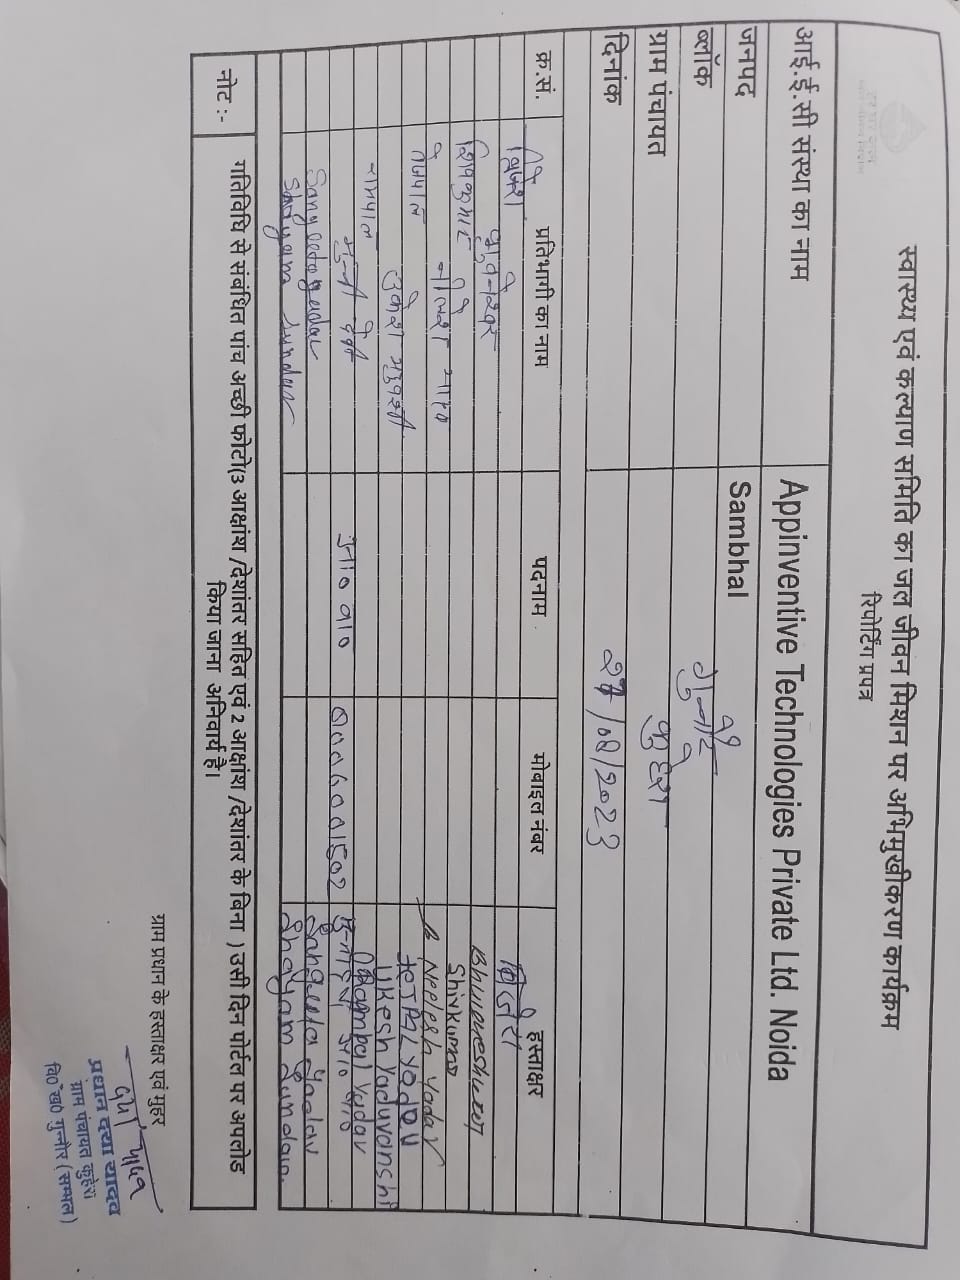 स्वास्थ्य एवं कल्याण समिति का जल जीवन मिशन पर अभिमुखीकरण कार्यक्रम
रिपोर्टिंग प्रपत्र
आई.ई.सी संस्था का नाम Appinventive Technologies Private Ltd. Noida
जनपद Sambhal
ब्लॉक गुन्नौर
ग्राम पंचायत कुहेरा
दिनांक 27/08/2023
क्र.सं. प्रतिभागी का नाम पदनाम मोबाइल नंबर हस्ताक्षर
भुवनेश्वर Bhuvneshwar
शिवकुमार Shivkumar
नीलेश यादव Neelesh Yadav
तेजपाल
उकेश यदुवंशी Ukesh Yaduvanshi
रामपाल Rampal Yadav
मुन्नी देवी
Sangeeta yadav Sangeeta yadav
Shayam Sundar Shayam Sundar
नोट :- गतिविधि से संबंधित पांच अच्छी फोटो(3 आक्षांश /देशांतर सहित एवं 2 आक्षांश /देशांतर के बिना ) उसी दिन पोर्टल पर अपलोड
किया जाना अनिवार्य है।
ग्राम प्रधान के हस्ताक्षर एवं मुहर
दया यादव
प्रधान दया यादव
ग्राम पंचायत कुहेरा
वि० ख० गुन्नौर (सम्भल)